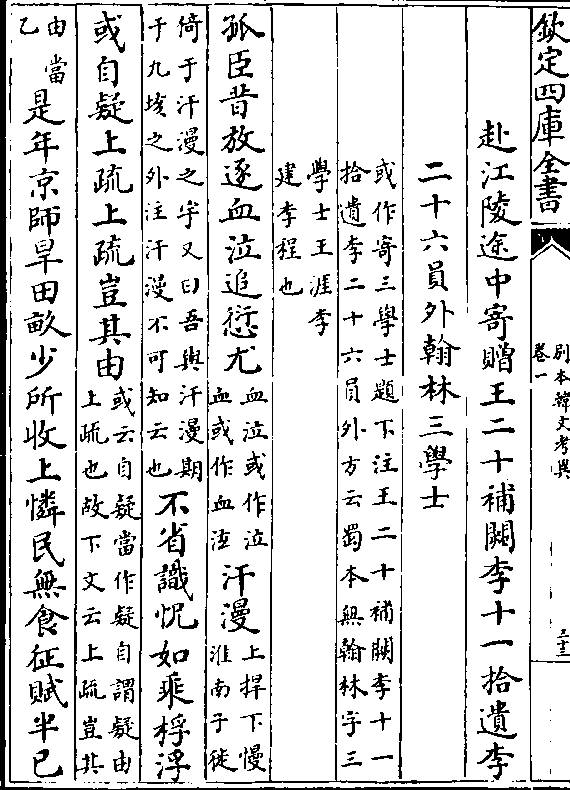 欽定四庫全書
別本韓文考異
卷一
三十三
赴江陵途中寄贈王二十補闕李十一拾遺李
二十六員外翰林三學士
或作寄三學士題下注王二十補闕李十一
拾遺李二十六員外方云蜀本無翰林字三
學士王涯李
建李程也
孤臣昔放逐血泣追愆尤
血泣或作泣
血或作血泣
汗漫
上捍下慢
淮南子徙
倚于汗漫之宇又曰吾與汗漫期
于九垓之外注汗漫不可知云也
不省識怳如乘桴浮
或自疑上疏上疏豈其由
或云自疑當作疑自謂疑由
上疏也故下文云上疏豈其
由當
乙
是年京師旱田畝少所收上憐民無食征賦半已